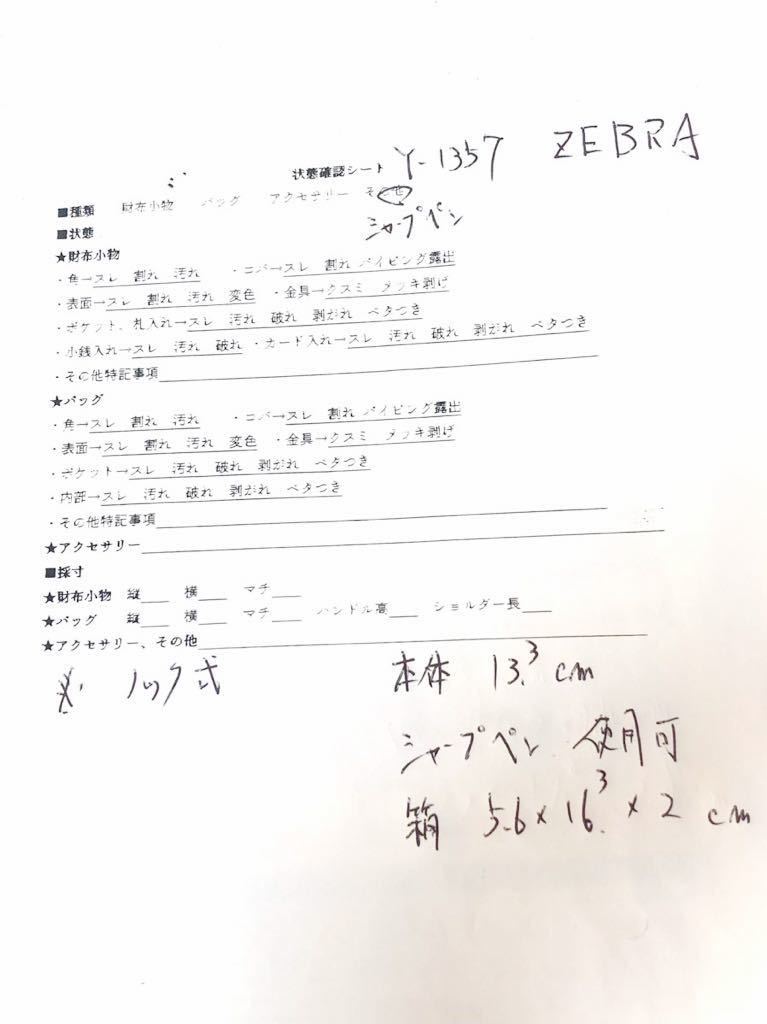 状態確認シート Y-1357 ZEBRA
■種類 財布小物 バッグ アクセサリー その他
シャープペン
■状態
★財布小物
・角→スレ 割れ 汚れ ・コバ→スレ 割れ パイピング露出
・表面→スレ 割れ 汚れ 変色 ・金具→クスミ メッキ剥げ
・ポケット、札入れ→スレ 汚れ 破れ 剥がれ ベタつき
・小銭入れ→スレ 汚れ 破れ ・カード入れ→スレ 汚れ 破れ 剥がれ ベタつき
・その他特記事項
★バッグ
・角→スレ 割れ 汚れ ・コバ→スレ 割れ パイピング露出
・表面→スレ 割れ 汚れ 変色 ・金具→クスミ メッキ剥げ
・ポケット→スレ 汚れ 破れ 剥がれ ベタつき
・内部→スレ 汚れ 破れ 剥がれ ベタつき
・その他特記事項
★アクセサリー
■採寸
★財布小物 縦 横 マチ
★バッグ 縦 横 マチ ハンドル高 ショルダー長
★アクセサリー、その他
ノック式 本体 13.3 cm
シャープペン 使用可
箱 5.6×16.3×2 cm